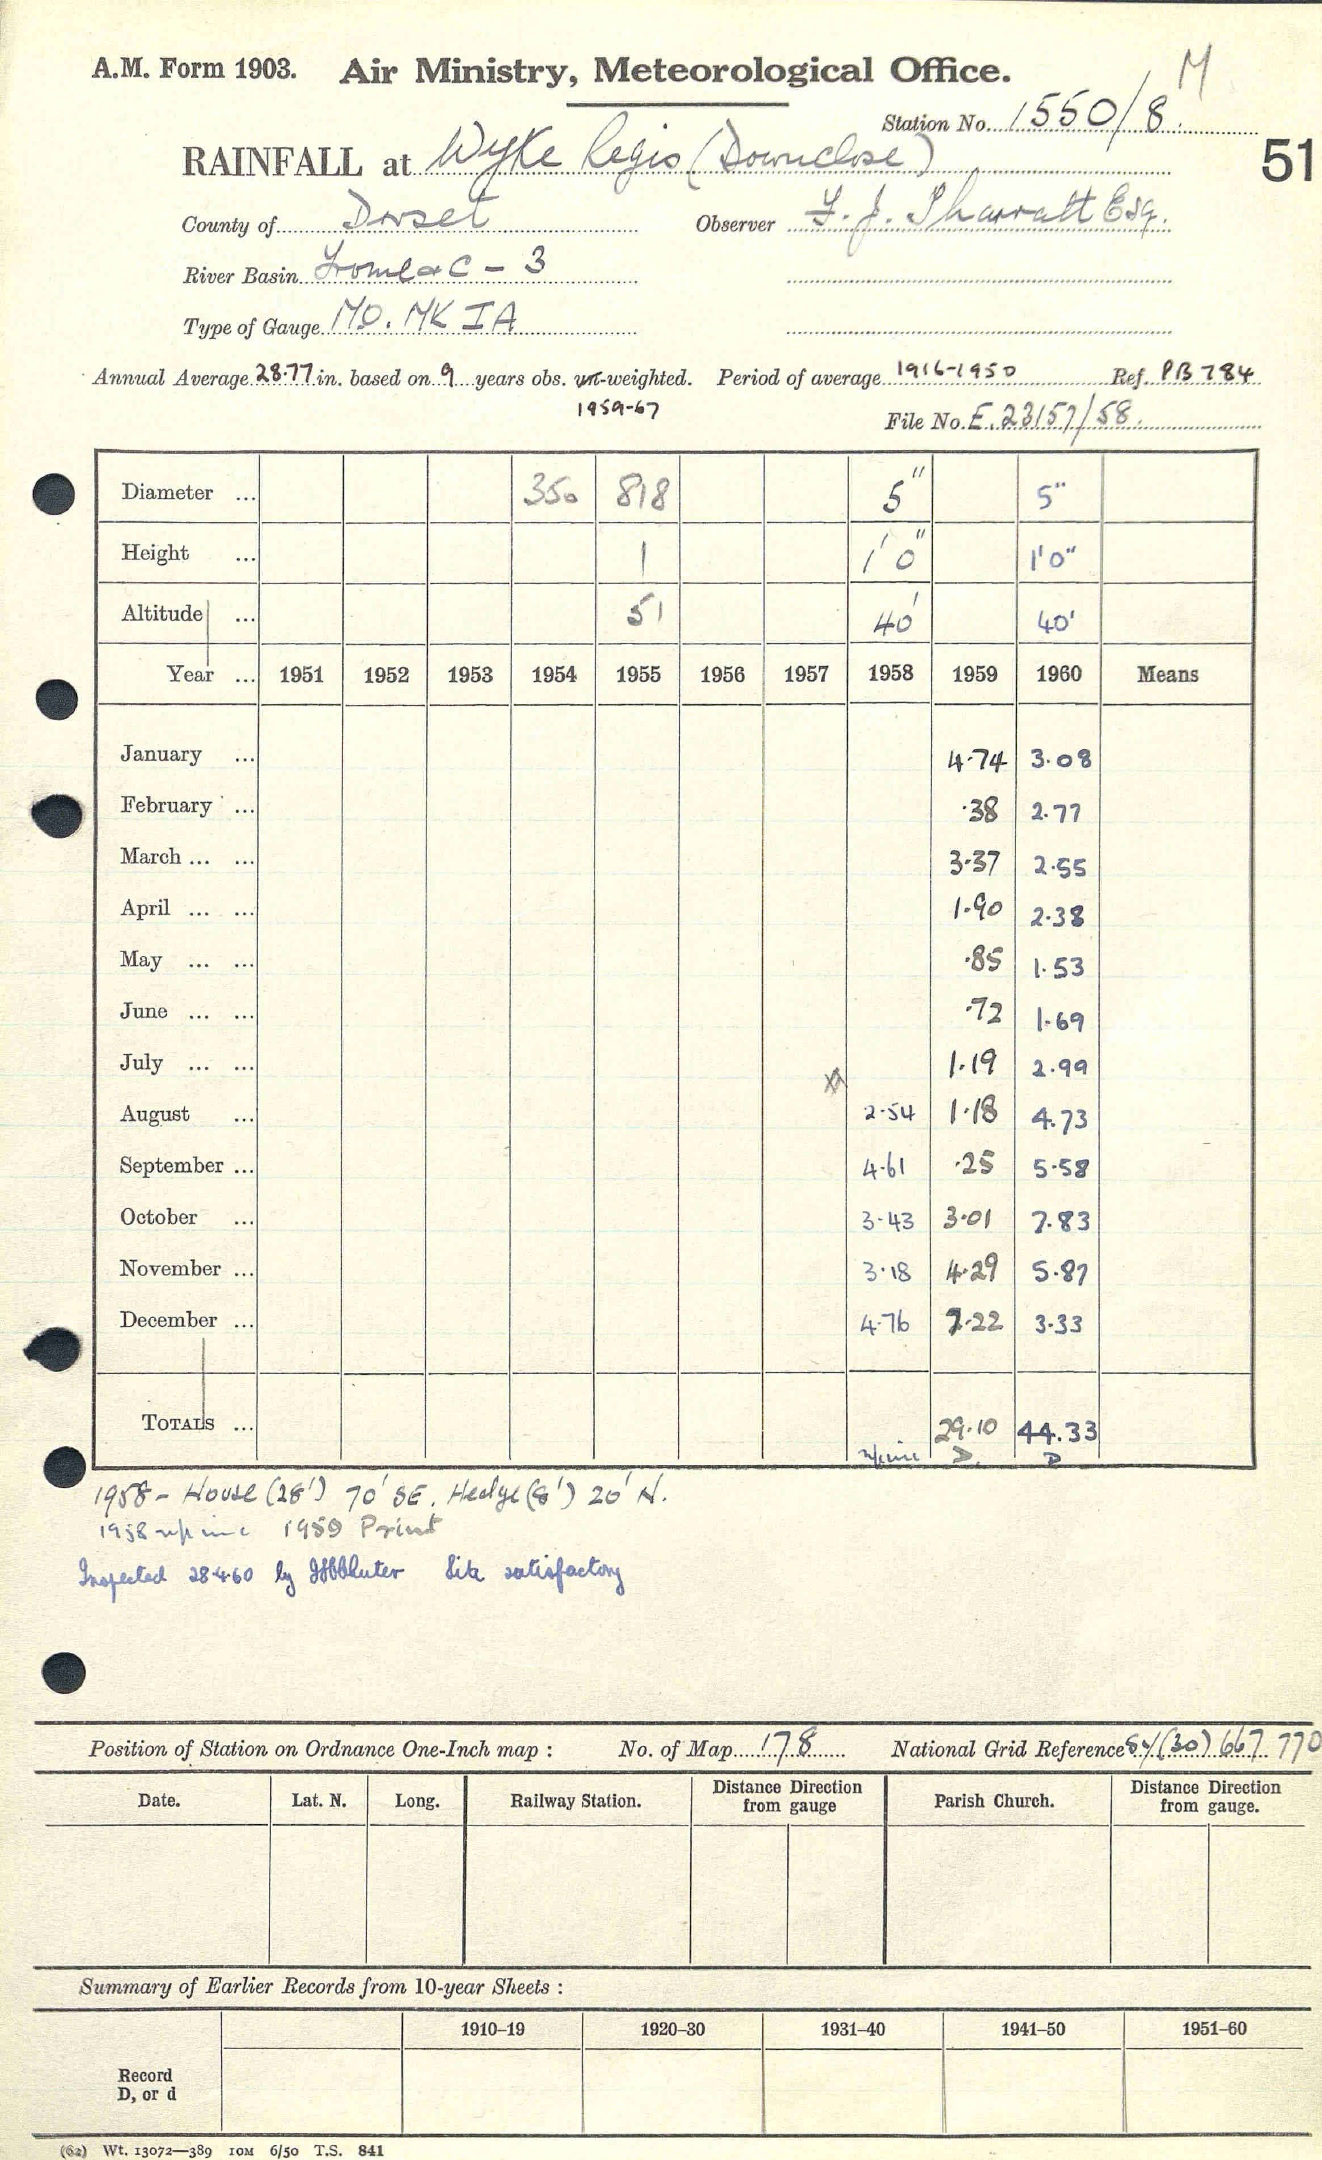 A.M. Form 1903. Air Ministry, Meteorological Office. M
Station No. 1550/8
51
RAINFALL at Wyke Regis (Downclose)
County of Dorset Observer F. J. Sharratt Esq.
River Basin Frome &c - 3
Type of Gauge MO. MK IA
Annual Average 28.77 in. based on 9 years obs. un-weighted. Period of average 1916-1950 Ref. PB 784
1959-67 File No. E.23157/58.
Diameter ... 350 818 5" 5"
Height ... 1 1'0" 1'0"
Altitude ... 51 40' 40'
Year ... 1951 1952 1953 1954 1955 1956 1957 1958 1959 1960 Means
January ... 4.74 3.08
February ... .38 2.77
March ... ... 3.37 2.55
April ... ... 1.90 2.38
May ... ... .85 1.53
June ... ... .72 1.69
July ... ... 1.19 2.99
August ... 2.54 1.18 4.73
September ... 4.61 .25 5.58
October ... 3.43 3.01 7.83
November ... 3.18 4.29 5.87
December ... 4.76 7.22 3.33
TOTALS ... 29.10 44.33
n/p inc D. D
1958 - House (28') 70' SE. Hedge (8') 20' N.
1958 n/p inc 1959 Print
Inspected 28.4.60 by Site satisfactory
Position of Station on Ordnance One-Inch map : No. of Map 178 National Grid Reference SY(30) 667 770
Date. Lat. N. Long. Railway Station. Distance Direction from gauge Parish Church. Distance Direction from gauge.
Summary of Earlier Records from 10-year Sheets :
1910–19 1920–30 1931–40 1941–50 1951–60
Record
D, or d
(62) Wt. 13072—389 10M 6/50 T.S. 841